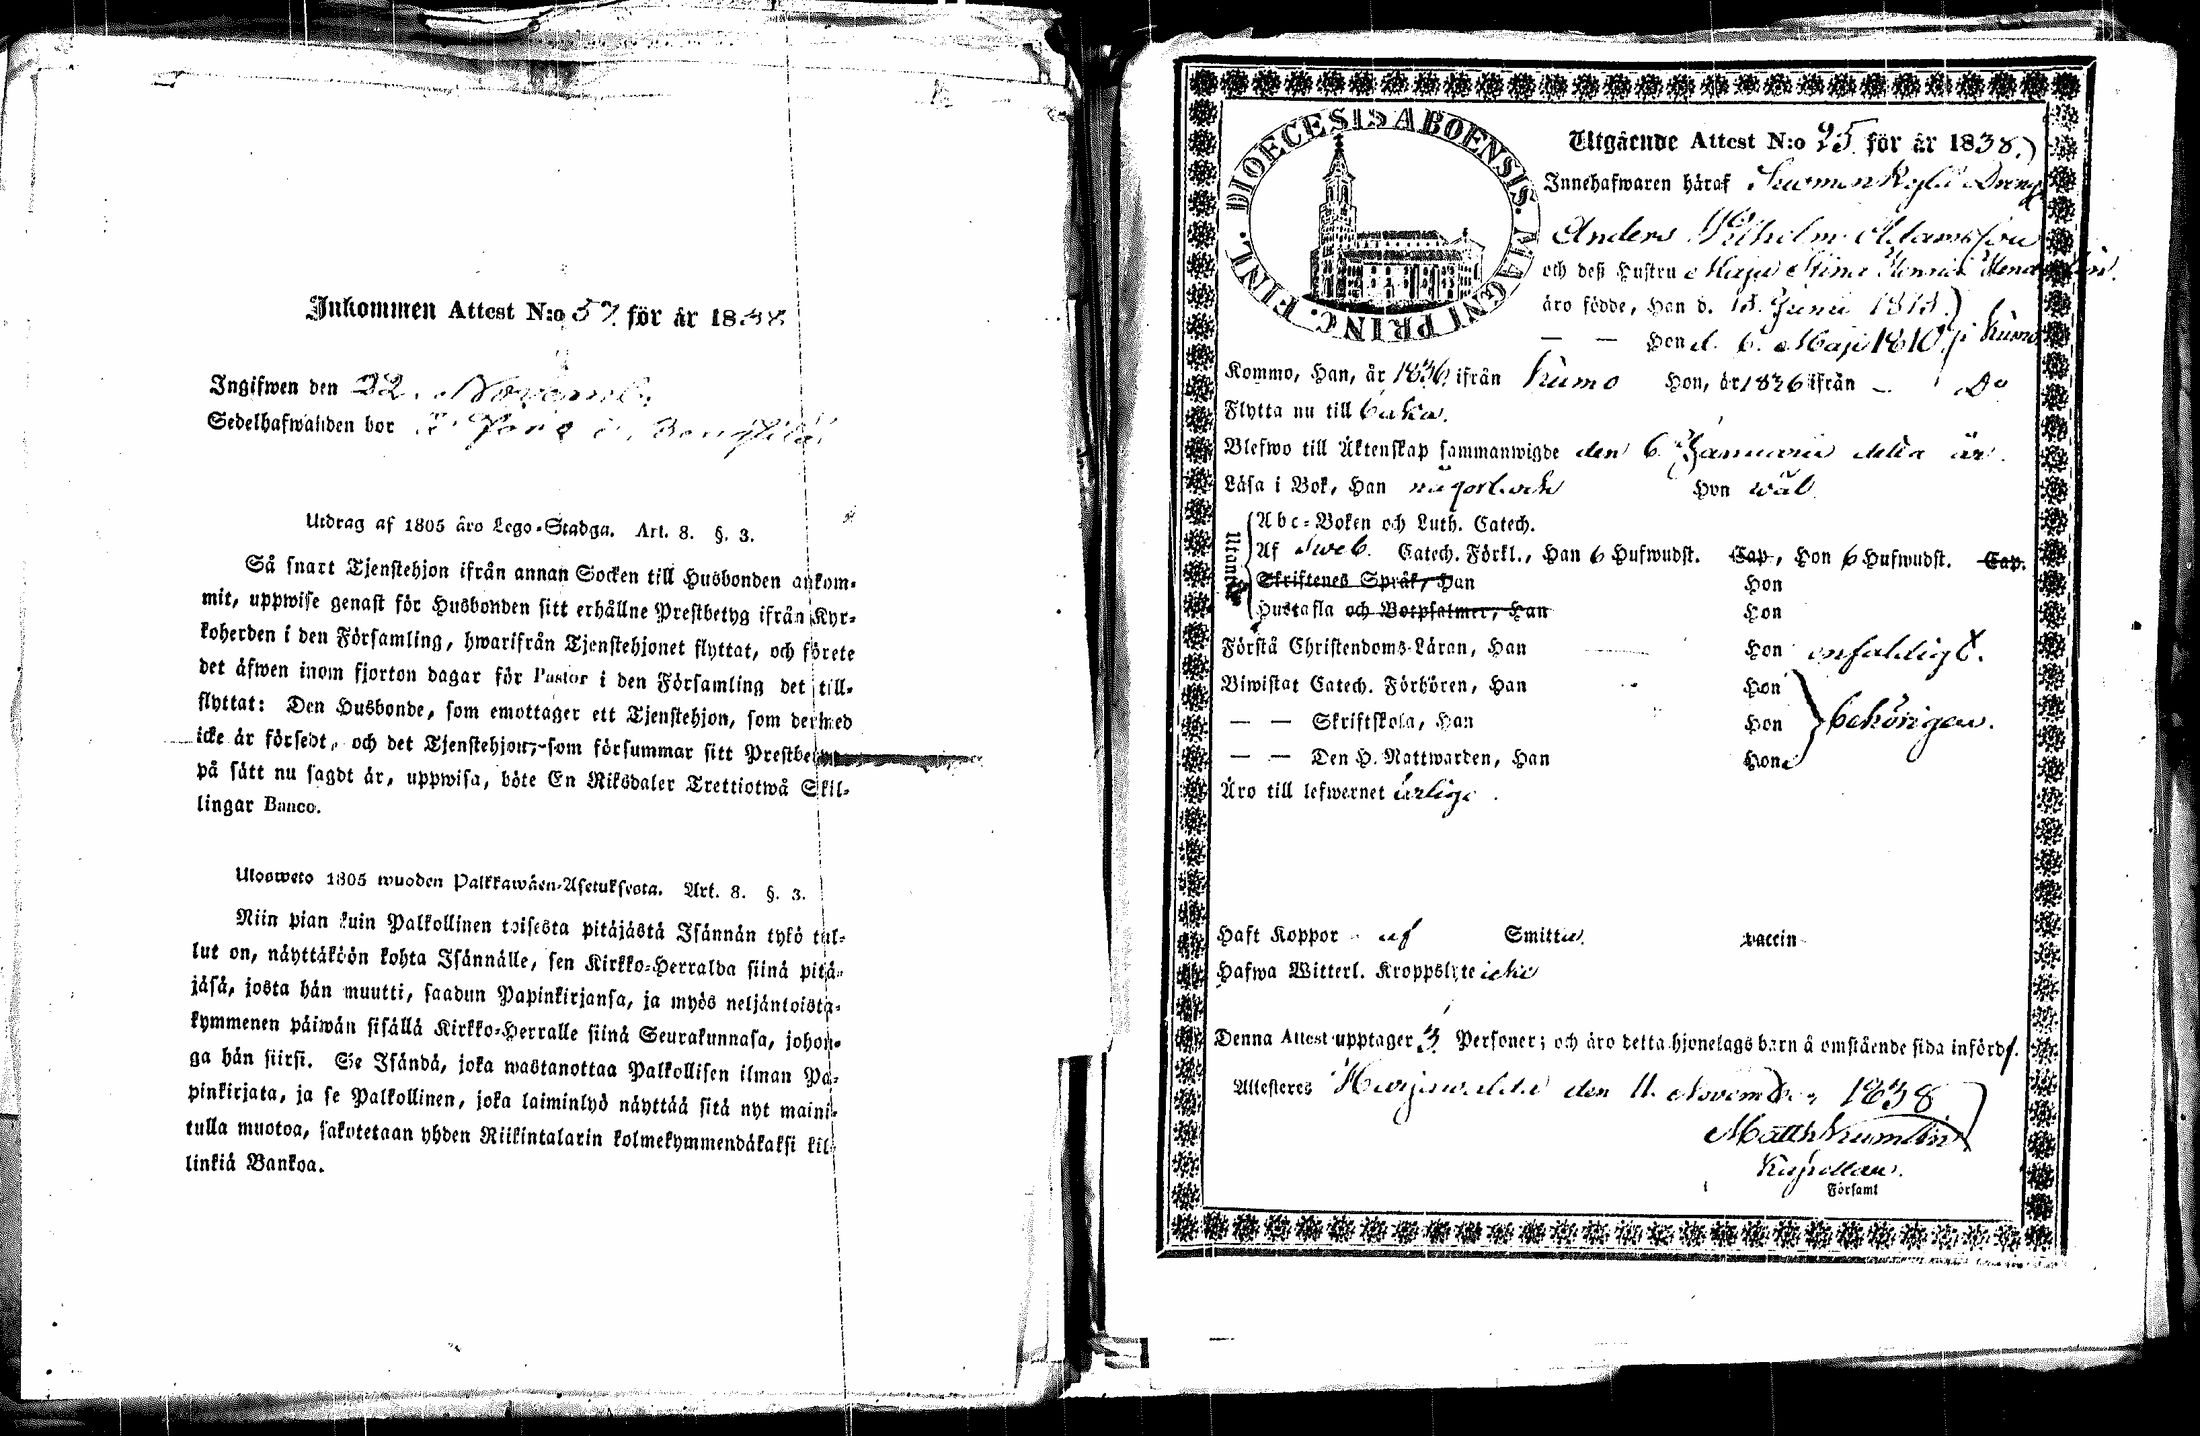 Inkommen Attest N:o 57 för år 1838
Ingifwen den 22. Novemb.
Sedelhafwanden bor
Utdrag af 1805 års Lego-Stadga. Art. 8. §. 3.
Så snart Tjenstehjon ifrån annan Socken till Husbonden ankom-
mit, uppwise genast för Husbonden sitt erhållne Prestbetyg ifrån Kyr-
koherden i den Församling, hwarifrån Tjenstehjonet flyttat, och förete
det åfwen inom fjorton dagar för Pastor i den Församling det till-
flyttat: Den Husbonde, som emottager ett Tjenstehjon, som dermed
icke är försedt, och det Tjenstehjon, som försummar sitt Prestbetyg
på sätt nu sagdt är, uppwisa, böte En Riksdaler Trettiotwå Skil-
lingar Banco.
Ulosweto 1805 wuoden Palkkawäen-Asetuksesta. Art. 8. §. 3.
Niin pian kuin Palkollinen toisesta pitäjästä Isännän tykö tul-
lut on, näyttäköön kohta Isännälle, sen Kirkko-Herralda siinä pitä-
jäsä, josta hän muutti, saadun Papinkirjansa, ja myös neljäntoista-
kymmenen päiwän sisällä Kirkko-Herralle siinä Seurakunnasa, johon-
ga hän siirsi. Se Isändä, joka wastanottaa Palkollisen ilman Pa-
pinkirjata, ja se Palkollinen, joka laiminlyö näyttää sitä nyt maini-
tulla muotoa, sakotetaan yhden Riikintalarin kolmekymmendäkaksi kil-
linkiä Bankoa.
DIOECESIS ABOENSIS. MAGNI PRINC. FINL.
Utgående Attest N:o 25 för år 1838.
Innehafwaren häraf Drengen
Anders Wilhelm Adamsson
och deß Hustru Maja Stina
äro födde, Han d. 13. Junii 1813
— — Hon d. 6. Maji 1810 i Kumo
Kommo, Han, år 1836 ifrån Kumo Hon, år 1836 ifrån — Do
Flytta nu till baka.
Blefwo till Äktenskap sammanwigde den 6 Januarii detta år.
Läsa i Bok, Han någorlunda Hon wäl
Utantill
Abc-Boken och Luth. Catech.
Af Sweb. Catech. Förkl., Han 6 Hufwudst. Cap, Hon 6 Hufwudst. Cap.
Skriftenes Språk, Han Hon
Hustafla och Botpsalmer, Han Hon
Förstå Christendoms-Läran, Han Hon enfaldigt.
Biwistat Catech. Förhören, Han Hon
— — Skriftskola, Han Hon behörigen.
— — Den H. Nattwarden, Han Hon
Äro till lefwernet ärlige.
Haft Koppor af Smitta. vaccin
Hafwa Witterl. Kroppslyte icke
Denna Attest upptager 3 Personer; och äro detta hjonelags barn å omstående sida införd.
Attesteres Harjawalda den 11. November 1838
Matth Krumlin
Kapellan.
Församl